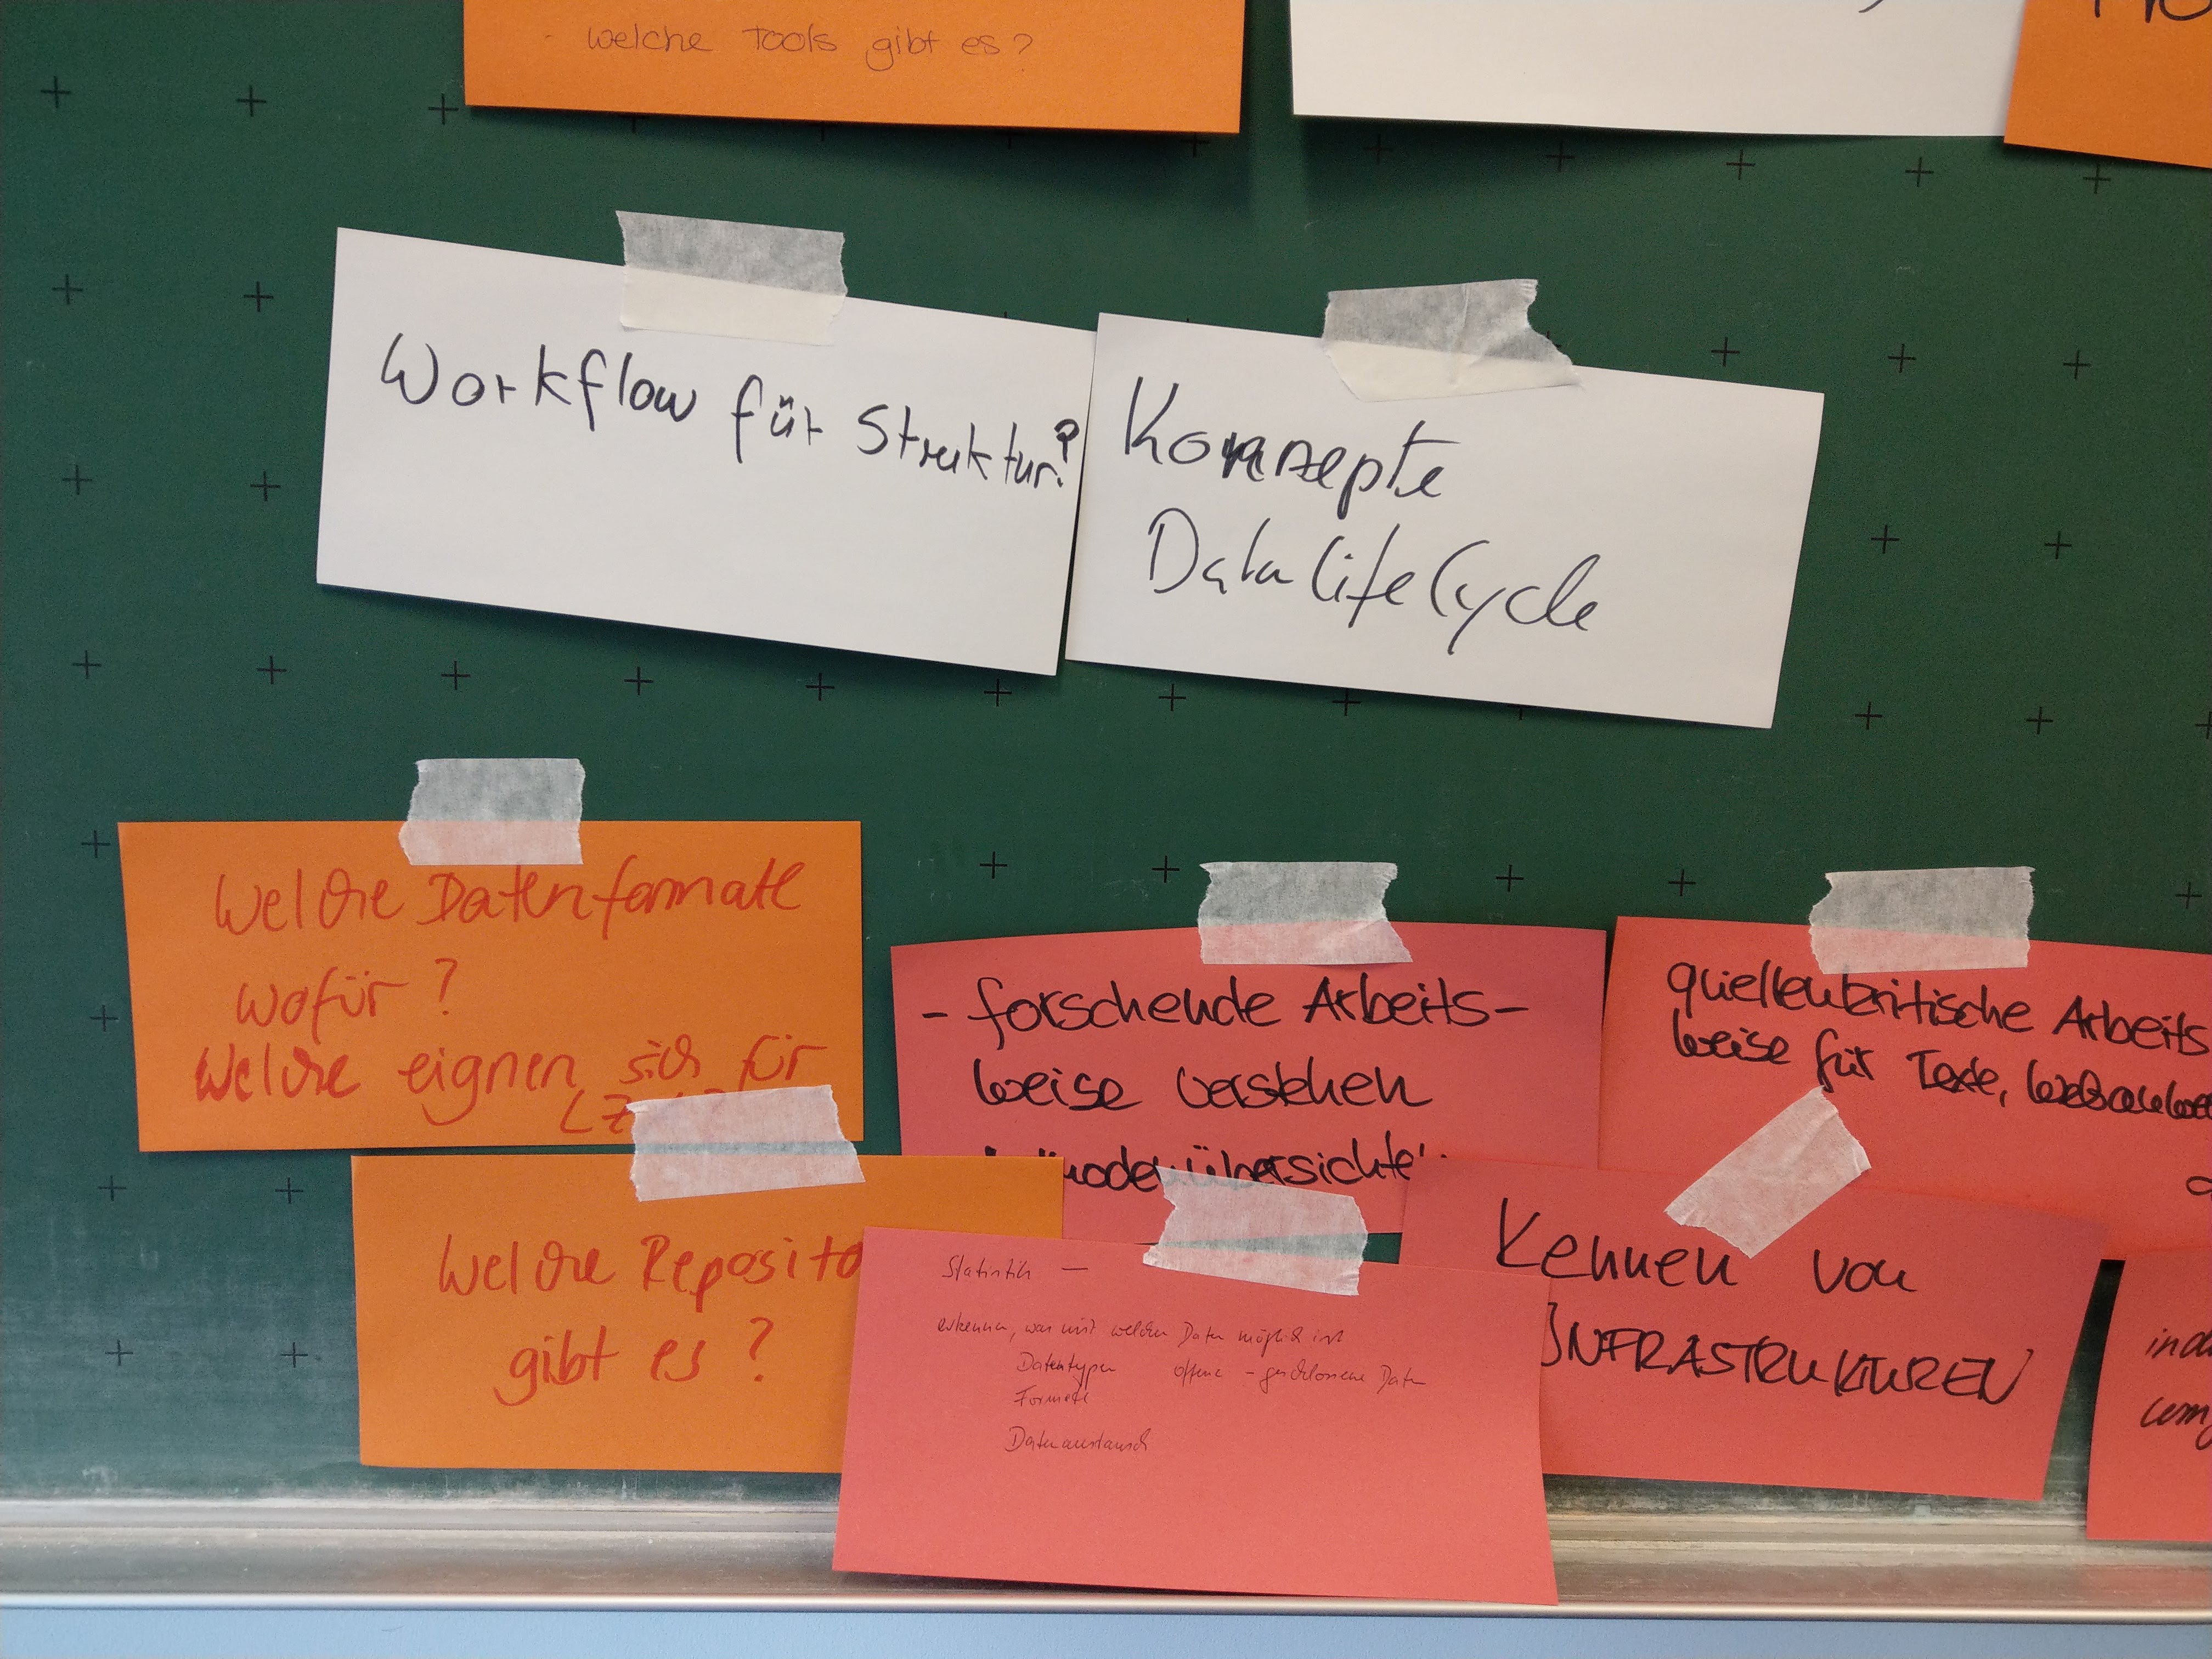 - welche Tools gibt es?
Workflow für Struktur?
Konzepte
Data Life Cycle
Welche Datenformate
wofür?
Welche eignen sich für
- forschende Arbeits-
weise verstehen
quellenkritische Arbeits
weise für Texte,
Welche Reposito
gibt es?
Statistik —
erkennen, was mit welchen Daten möglich ist
Datentypen offene - geschlossene Daten
Formate
Datenaustausch
Kennen von
INFRASTRUKTUREN